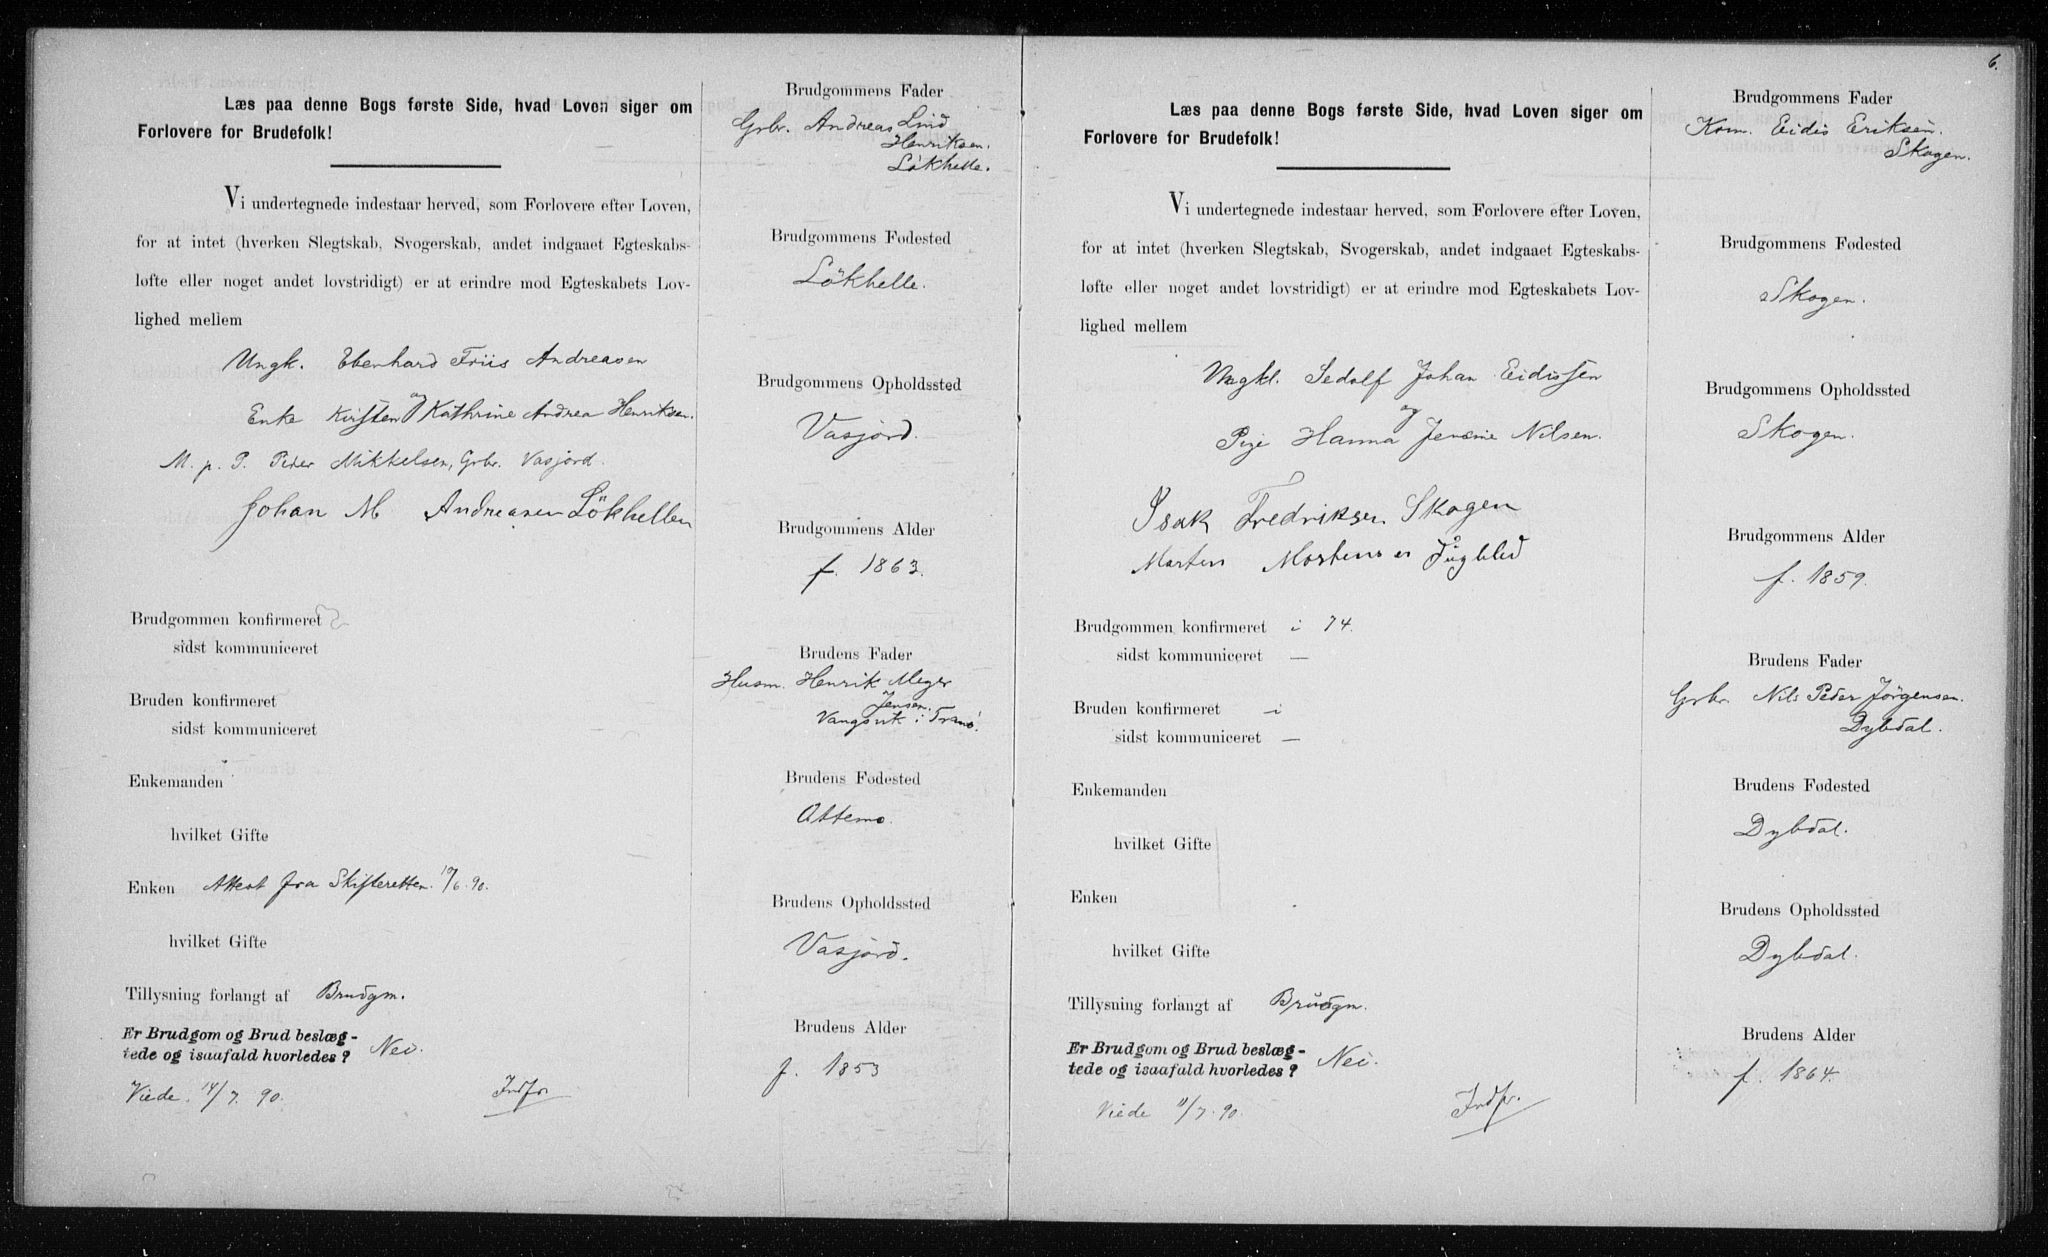 Læs paa denne Bogs første Side, hvad Loven siger om
Forlovere for Brudefolk!
Vi undertegnede indestaar herved, som Forlovere efter Loven,
for at intet (hverken Slegtskab, Svogerskab, andet indgaaet Egteskabs-
løfte eller noget andet lovstridigt) er at erindre mod Egteskabets Lov-
lighed mellem
Ungk. Eberhard Friis Andreasen
og
Enke Kirsten Kathrine Andrea Henriksen.
M. p. P. Peder Mikkelsen, Grbr. Vasjord.
Johan M Andreasen Lökhellen
Brudgommen konfirmeret
sidst kommuniceret
Bruden konfirmeret
sidst kommuniceret
Enkemanden
hvilket Gifte
Enken Attest fra Skifteretten 19/6 90.
hvilket Gifte
Tillysning forlangt af Brudgm.
Er Brudgom og Brud beslæg-
tede og isaafald hvorledes? Nei.
Viede 14/7. 90. Indfr.
Brudgommens Fader
Grbr. Andreas Lind
Henriksen.
Lökhelle.
Brudgommens Fødested
Lökhelle.
Brudgommens Opholdssted
Vasjord.
Brudgommens Alder
f. 1863.
Brudens Fader
Husm. Henrik Meyer
Jensen.
Vangsvik i Tranö.
Brudens Fødested
Attemo.
Brudens Opholdssted
Vasjord.
Brudens Alder
f. 1853
6.
Læs paa denne Bogs første Side, hvad Loven siger om
Forlovere for Brudefolk!
Vi undertegnede indestaar herved, som Forlovere efter Loven,
for at intet (hverken Slegtskab, Svogerskab, andet indgaaet Egteskabs-
løfte eller noget andet lovstridigt) er at erindre mod Egteskabets Lov-
lighed mellem
Ungkl. Sedolf Johan Eidissen
og
Pige Hanna Jensine Nilsen.
Isak Fredriksen Skogen
Morten Mortensen
Brudgommen konfirmeret i 74.
sidst kommuniceret —
Bruden konfirmeret i
sidst kommuniceret —
Enkemanden
hvilket Gifte
Enken
hvilket Gifte
Tillysning forlangt af Brudgm.
Er Brudgom og Brud beslæg-
tede og isaafald hvorledes? Nei.
Viede 11/7. 90. Indfr.
Brudgommens Fader
Kom. Eidis Eriksen.
Skogen.
Brudgommens Fødested
Skogen.
Brudgommens Opholdssted
Skogen.
Brudgommens Alder
f. 1859.
Brudens Fader
Grbr. Nils Peder Jörgensen.
Dybdal.
Brudens Fødested
Dybdal.
Brudens Opholdssted
Dybdal.
Brudens Alder
f. 1864.